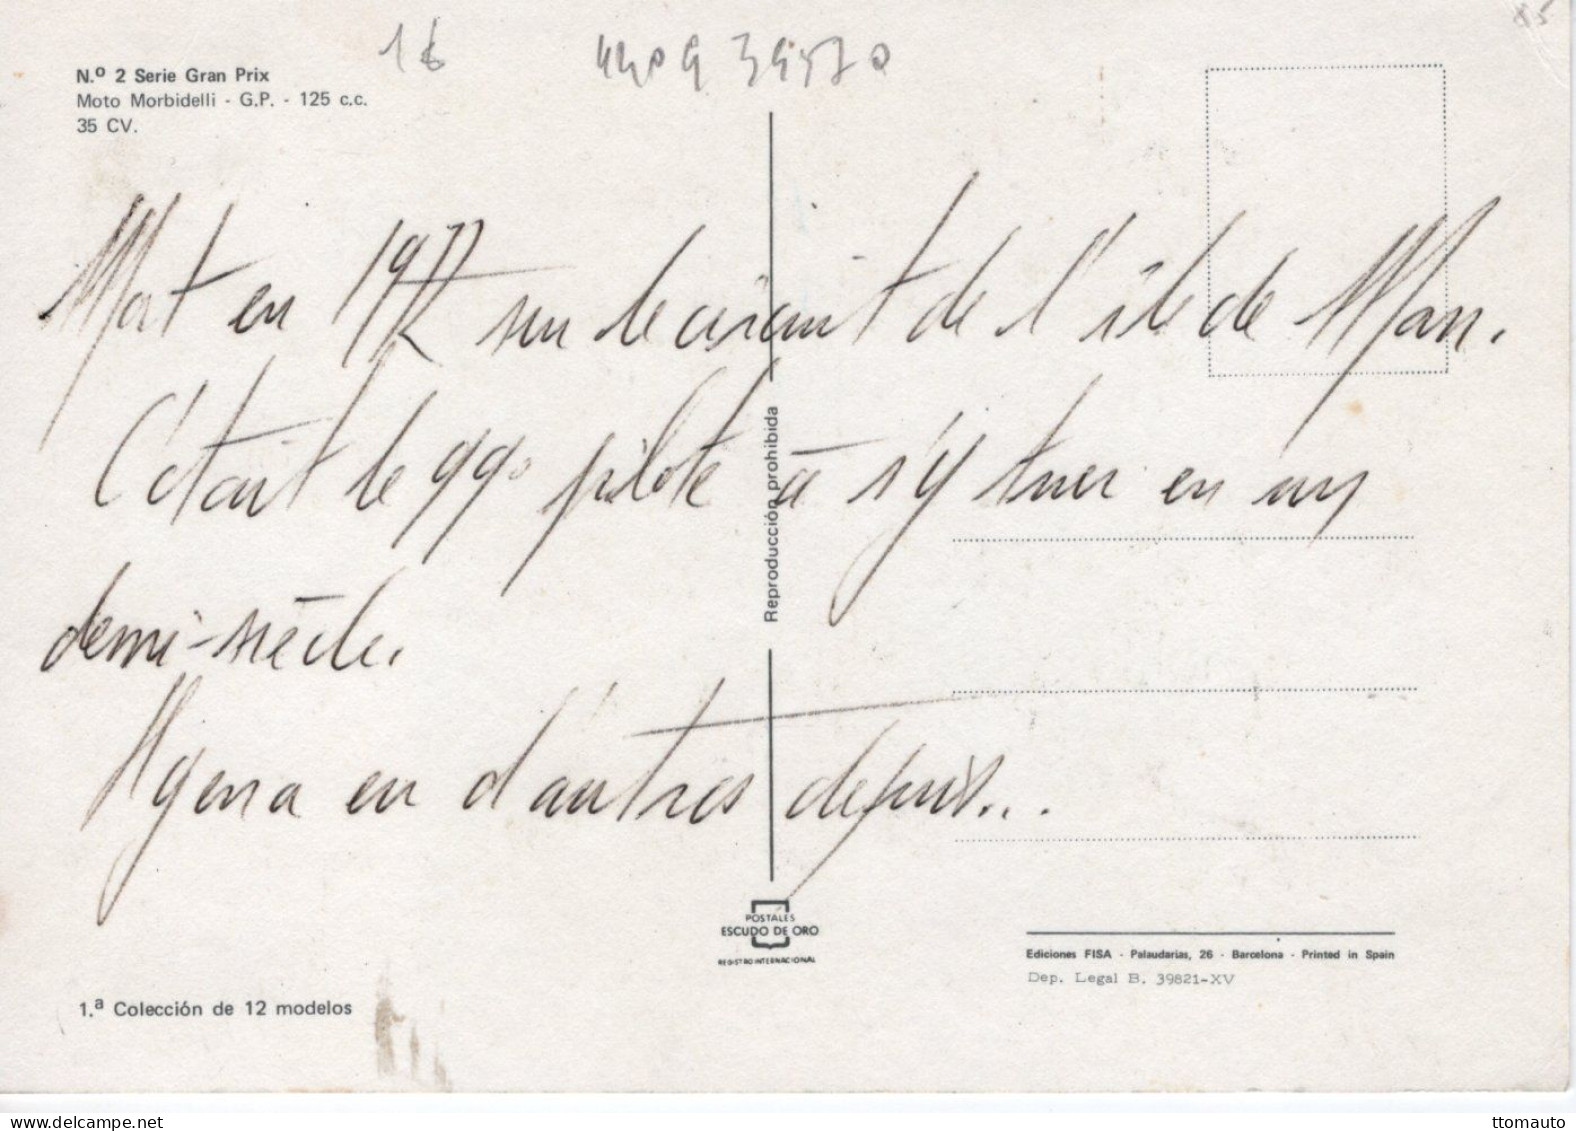 85
1€
N.º 2 Serie Gran Prix
Moto Morbidelli - G.P. - 125 c.c.
35 CV.
Mort en 1977 sur le circuit de l'île de Man.
C'était le 99° pilote à s'y tuer en un
demi-siècle.
Il y en a eu d'autres depuis...
Reproducción prohibida
POSTALES
ESCUDO DE ORO
REGISTRO INTERNACIONAL
Ediciones FISA - Palaudarias, 26 - Barcelona - Printed in Spain
Dep. Legal B. 39821-XV
1.ª Colección de 12 modelos
ttomauto